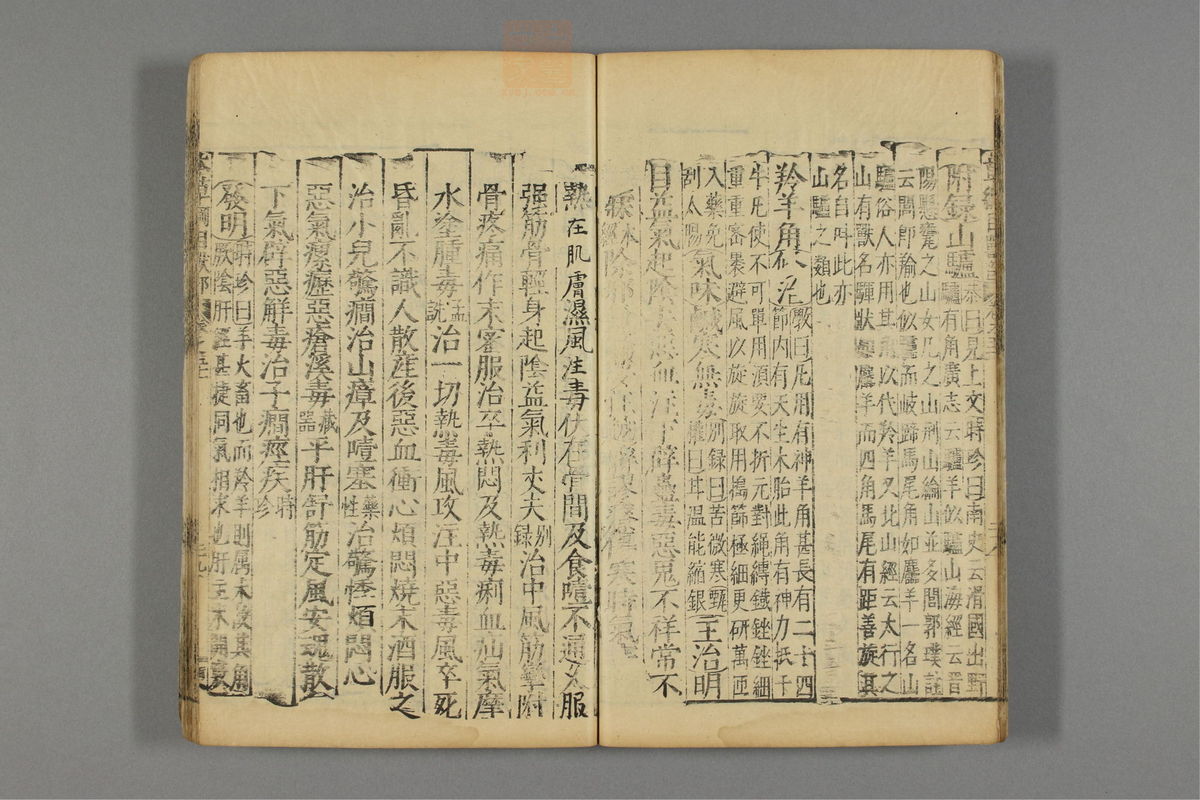 附録山驢恭曰見上文時珍曰南史云滑國出野
驢有角廣志云驢羊似驢山海經云晉
陽懸甕之山女几之山荆山綸山並多閭郭璞註
云閭即羭也似驢而岐蹄馬尾角如麢羊一名山
驢俗人亦用其角以代羚羊又北山經云太行之
山有獸名驒狀如麢羊而四角馬尾有距善旋其
名自呌此亦
山驢之類也
羚羊角 修治
斆曰凡用有神羊角甚長有二十四
節内有天生木胎此角有神力抵千
牛凡使不可單用須要不折元對繩縛鐵銼銼細
重重密裹避風以旋旋取用搗篩極細更研萬匝
入藥免
刮太陽
氣味鹹寒無毒别録曰苦微寒甄
權曰甘温能縮銀
主治明
目益氣起陰去惡血注下辟蠱毒惡鬼不祥常不
本
經 寒時氣
熱在肌膚濕風注毒伏在骨間及食噎不通久服
强筋骨輕身起陰益氣利丈夫别録治中風筋攣附
骨疼痛作末蜜服治卒熱悶及熱毒痢血疝氣摩
水塗腫毒孟詵治一切熱毒風攻注中惡毒風卒死
昏亂不識人散産後惡血衝心煩悶燒末酒服之
治小兒驚癇治山瘴及噎塞藥性治驚悸煩悶心
惡氣瘰癧惡瘡溪毒藏器平肝舒筋定風安魂散血
下氣辟惡解毒治子癇痙疾時珍
發明時珍曰羊火畜也而羚羊則屬木故其角
入厥陰肝經甚捷同氣相求也肝主木開竅